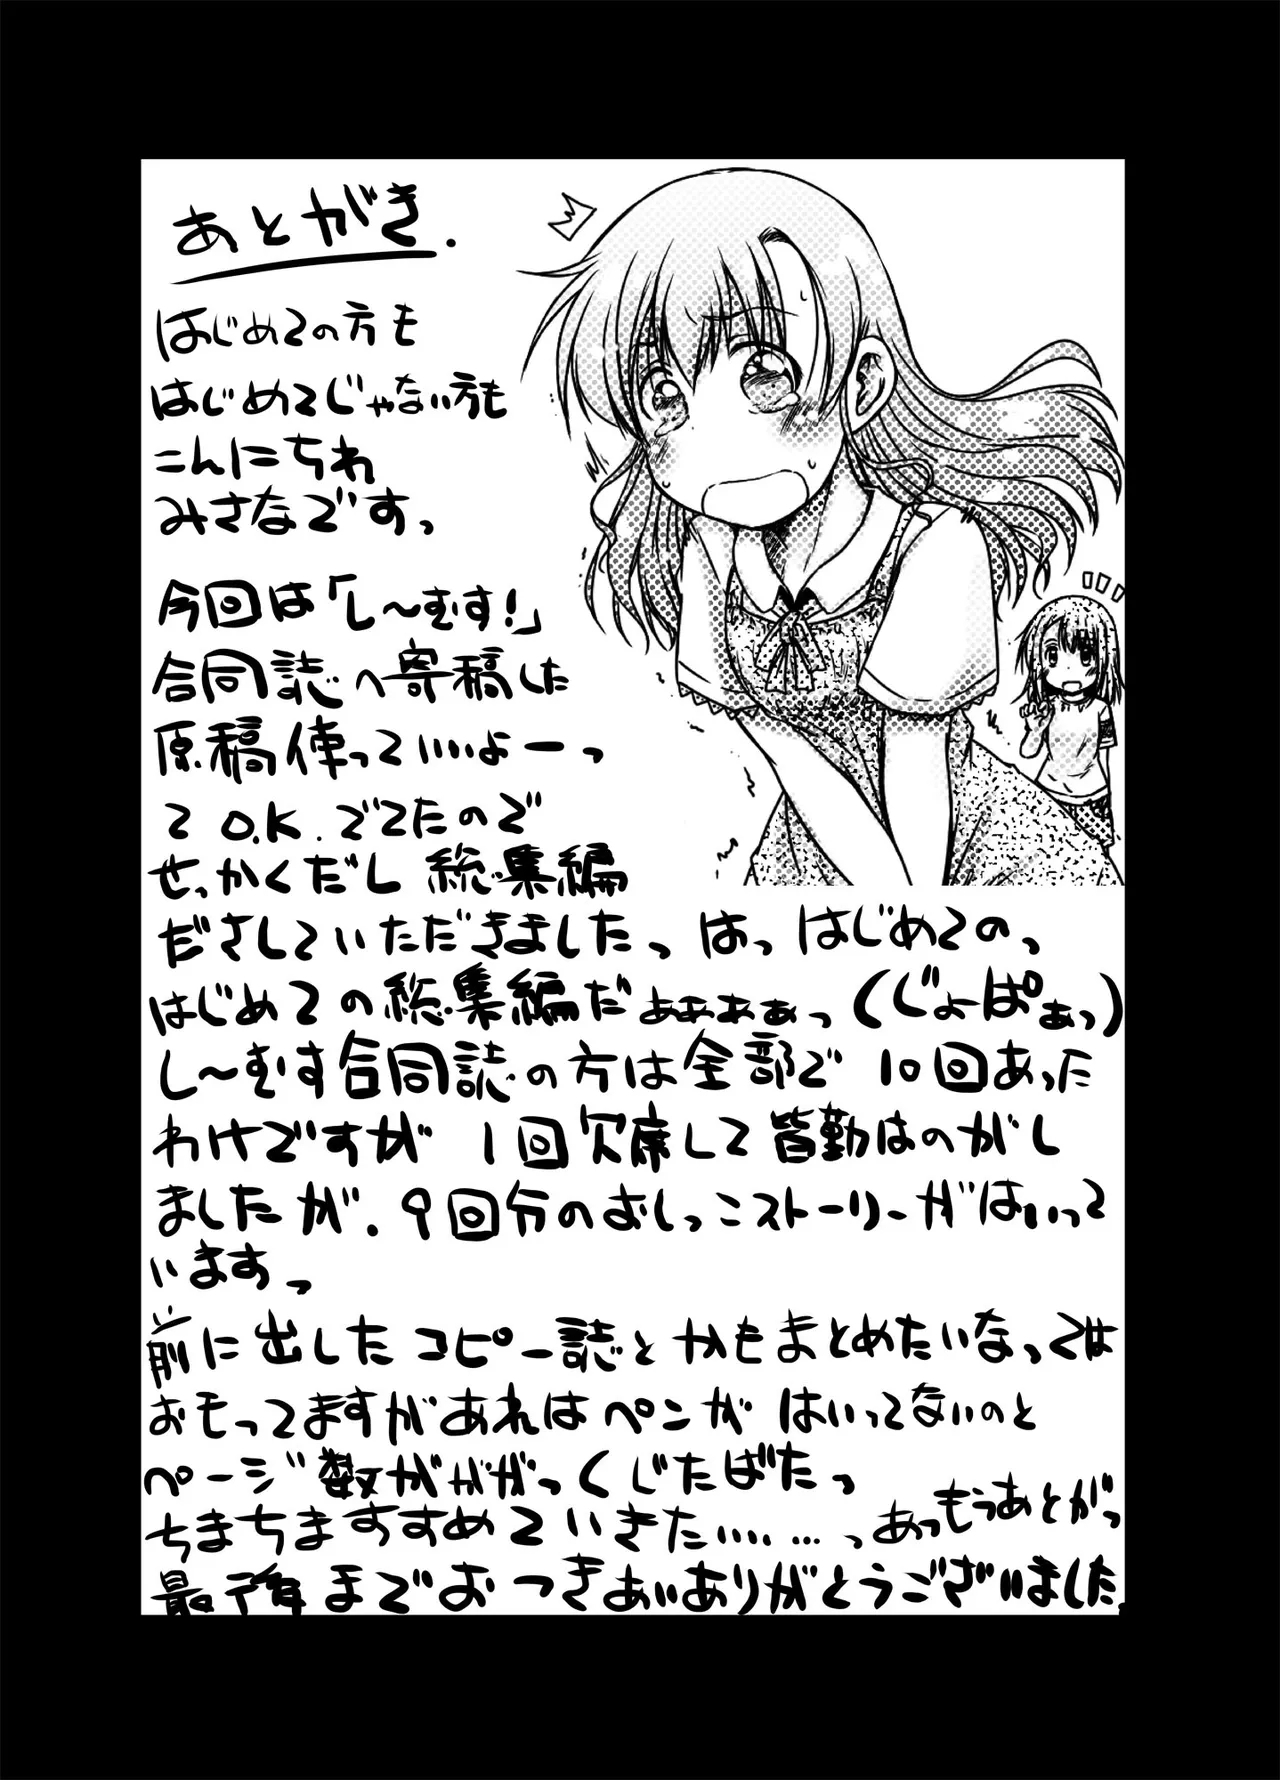 あとがき.
はじめての方も
はじめてじゃない方も
こんにちわ
みさなですっ
今回は「し～むす！」
合同誌へ寄稿した
原稿使っていいよーっ
て O.K. でてたので
せっかくだし 総集編
ださしていただきましたっ はっ はじめてのっ
はじめての総集編だぁぁぁぁっ (じょぱぁっ)
し～むす合同誌の方は全部で 10回あった
わけですが 1回欠席して皆勤はのがし
ましたが. 9回分のおしっこストーリーがはいって
いますっ
前に出したコピー誌とかもまとめたいなっては
おもってますがあれはペンが はいってないのと
ページ数ががががっくじたばたっ
ちまちますすめていきた、、、、……っ あっもうあとがっ
最後までおつきあいありがとうございました